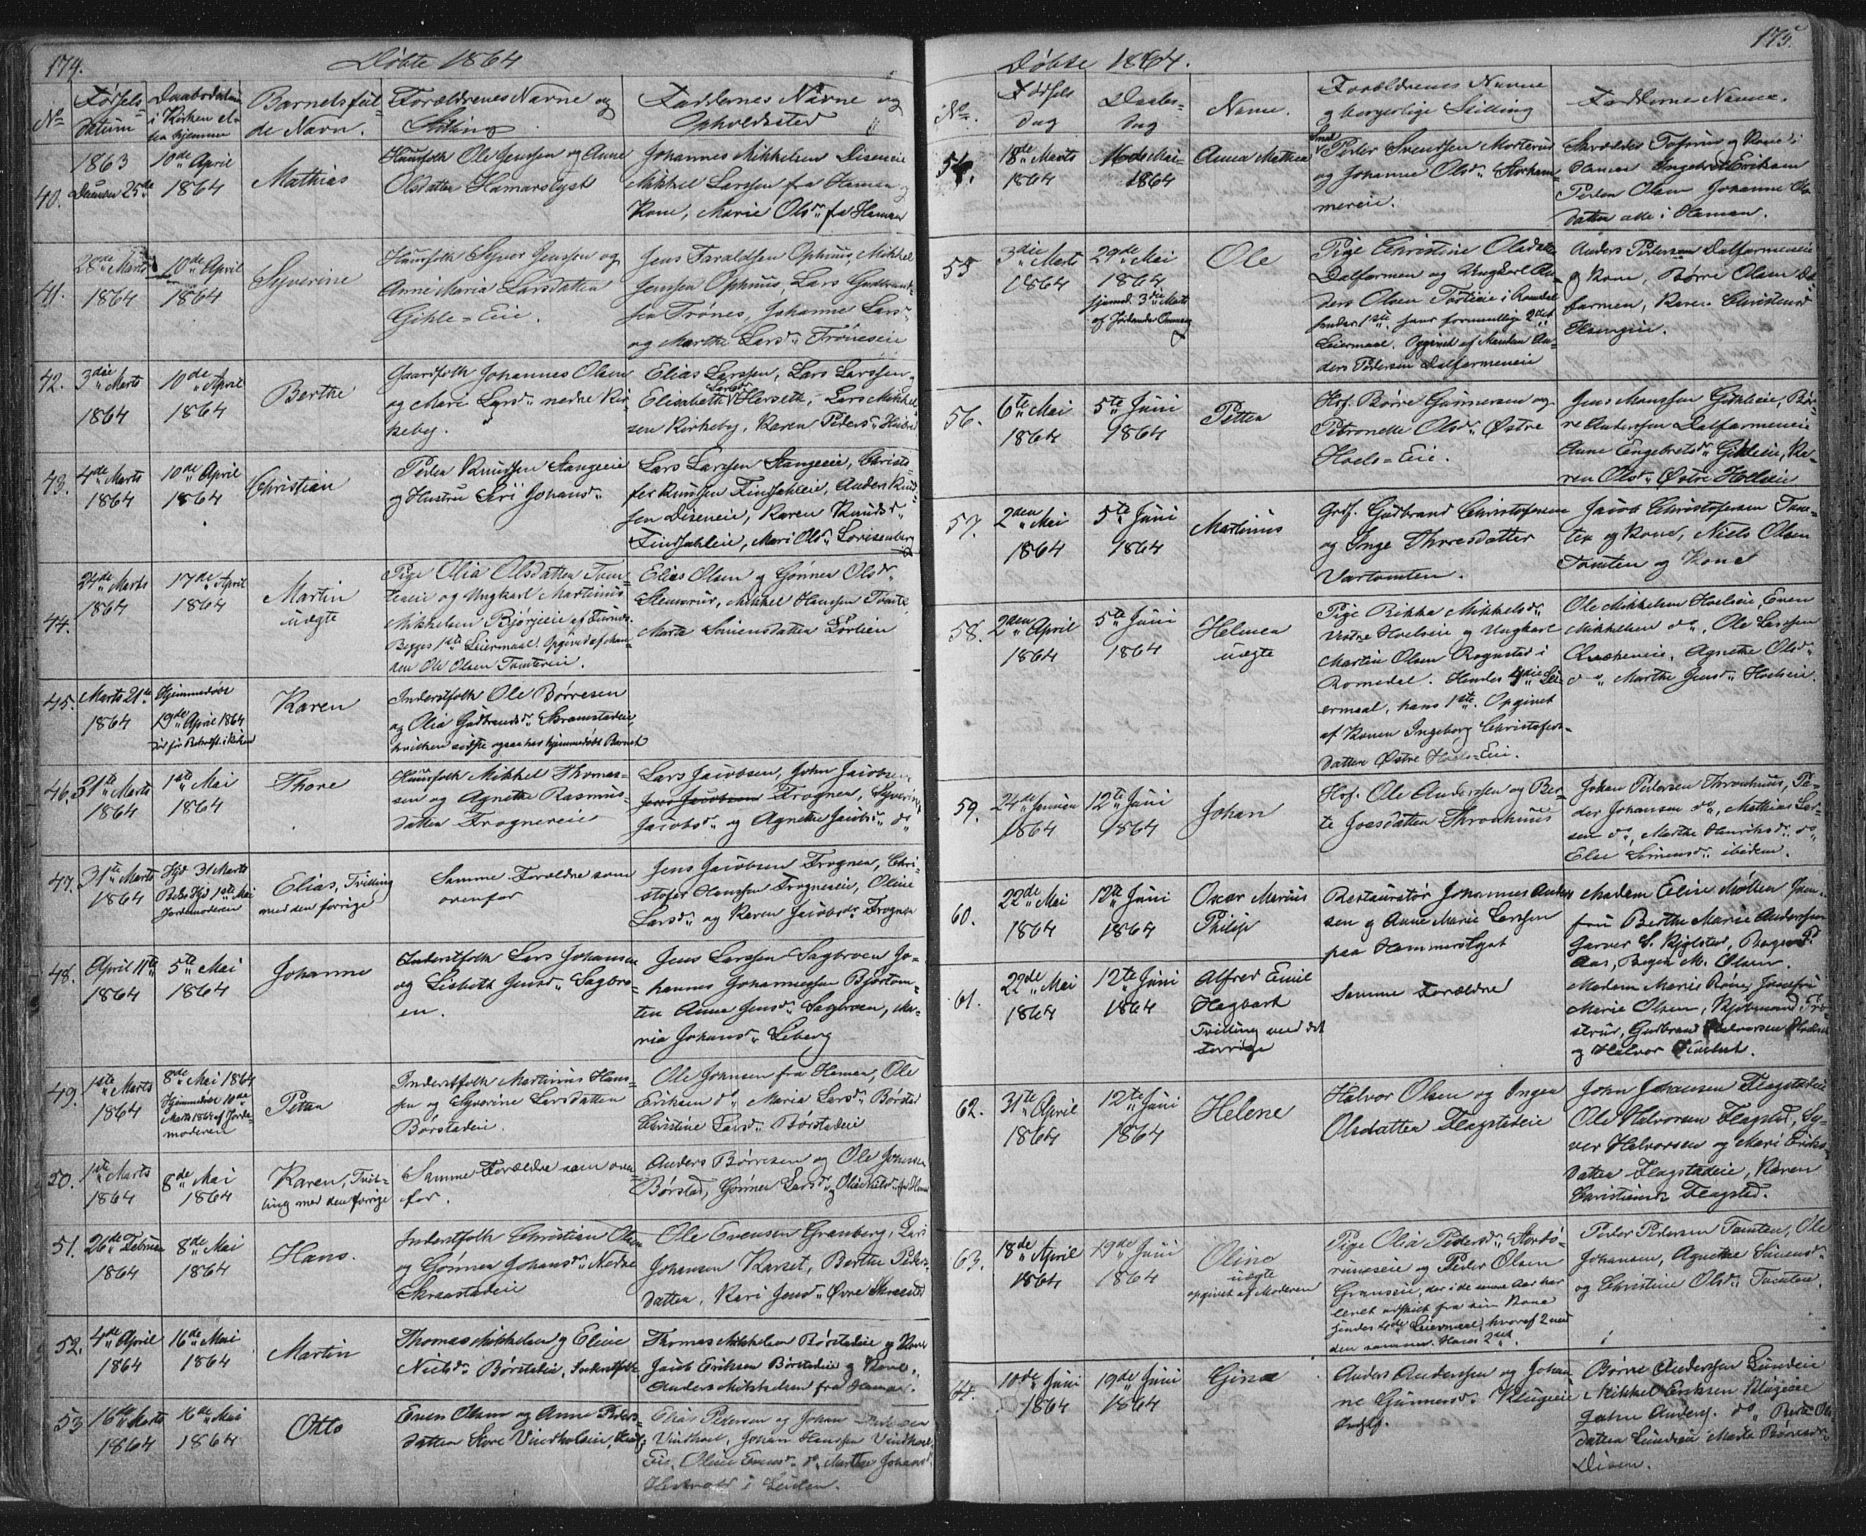 174.
Døbte 1864
No
Fødsels
datum
Daabsdatum
i Kirken el-
ler hjemme
Barnets fuld
de Navn.
Forældrenes Navne og
Stilling
Faddernes Navne og
Opholdssted
40.
1863
Decemb 25de
10de April
1864
Mathias
Huusfolk Ole Jenssen og Anne
Olsdatter Hamarslyst
Johannes Mikkelsen Diseneie
Mikkel Larssen fra Hamar og
Kone, Marie Olsd. fra Hamar
41.
28de Marts
1864
10de April
1864
Syverine
Huusfolk Syver Jenssen og
Anne Maria Larsdatter
Gihle-Eie.
Jens Haraldsen Ophuus, Mikkel
Jenssen Ophuus, Lars Gudbrands
fra Frønes, Johanne Lars-
og Marthe Larsd. Frøneseie
42.
3die Marts
1864
10de April
1864
Berthe
Gaardfolk Johannes Olsen
og Mari Larsd. nedre Kir-
keby.
Elias Larssen, Lars Larssen,
Elisabeth Larsd. Herseth, Lars Mikkel-
sen Kirkeby, Karen Pedersd.
43.
4de Marts
1864
10de April
1864
Christian
Peder Knudsen Stangeeie
og Hustru Siri Johansd.
Lars Larssen Stangeeie, Christo-
fer Knudsen Findsahleie, Anders Knud-
sen Diseneie, Karen Knudsd.
Findsahleie, Mari Olsd. Lovisenberg
44.
24de Marts
1864
17de April
1864
Martin
uægte
Pige Olia Olsdatter Tom-
tereie og Ungkarl Martinus
Mikkelsen Bjørgeeie af Furnes
Begges 1ste Leiermaal. Opgivet af Man-
den Ole Olsen Tomtereie.
Elias Olsen og Gønner Olsd.
Slemsrud, Mikkel Hanssen
Marte Simensdatter Sørlien
45.
Marts 21de
1864
Hjemmedøbt
19de April 1864
Karen
Inderstfolk Ole Børresen
og Olia Gudbrandsd. Skramstadeie
hvilken sidste ogsaa har hjemmedøbt Barnet
46.
31te Marts
1864
1ste Mai
1864
Thore
Huusfolk Mikkel Thomas-
sen og Agnethe Rasmus-
datter Frognereie
Lars Jacobsen, John Jacobsen
Frogner, Syverine
Jacobsd. og Agnethe Jacobsd. do
47.
31te Marts
1864
Hjd 31 Marts
1ste Mai
Jordemoderen
Elias, Tvilling
med den forrige
Samme Forældre som
ovenfor
Jens Jacobsen Frogner, Chri-
stofer Hanssen Frognereie, Oline
Larsd. og Karen Jacobsd. Frogner
48.
April 11te
1864
5te Mai
1864
Johanne
Inderstfolk Lars Johansen
og Lisbeth Jensd. Sagbro-
en.
Jens Larssen Sagbroen Jo-
hannes Johannessen Bjørtom-
ten Anne Jensd. Sagbroen, Ma-
ria Johansd. Seberg
49.
1ste Marts
1864
8de Mai 1864
Hjemmedøbt 10de
Marts 1864 af Jorde-
moderen
Petter
Inderstfolk Martinus Hans-
sen og Syverine Larsdatter
Børstadeie.
Ole Johnsen fra Hamar, Ole
Eriksen do, Maria Larsd. Børstad
Christine Larsd. Børstadeie
50.
1ste Marts
1864
8de Mai
1864
Karen, Tvil-
ling med den forrige
Samme Forældre som oven-
for.
Anders Børresen og Ole Johnsen
Børstad, Gønner Larsd.
51.
26de Februar
1864
8de Mai
1864
Hans.
Inderstfolk Christian Olsen
og Gønner Johansd. Nedre
Skraastadeie
Ole Evensen Granberg, Lars
Johansen Karset, Berthe Peders-
datter, Kari Jensd. Øvre Skraastad
52.
4de April
1864
16de Mai
1864
Martin
Thomas Mikkelsen og Eline
Nielsd. Børstadeie, Inderstfolk
Thomas Mikkelsen Børstadeie og Kone
Jacob Eriksen Børstadeie og Kone,
Anders Mikkelsen fra Hamar.
53
16de Marts
1864
16de Mai
1864
Otto
Even Olsen og Anne Peders-
datter Store Vindholseie,
Elias Pedersen og Johan Pedersen
Vindhoel, Johan Hanssen Vindhoel
Eie, Oline Evensd. do, Marthe Johansd.
175.
Døbte 1864.
No.
Fødsels
dag
Daabs-
dag
Navne
Forældrenes Navne
og borgerlige Stilling
Faddernes Navne.
54.
18de Marts
1864
16de Mai
1864
Anna Mathea
Peder Svendsen Morterud
og Johanne Olsd. Storham-
mereie.
Skrædder Tofsrud og Kone i
Hamar Ingebret Eriksen
Peder Olsen Johanne Ols-
datter alle i Hamar.
55
3die Marts
1864
29de Mai
1864
hjemd. 3die Marts
af Jordemoder
Ole
Pige Christine Olsdatter
Dalfarmen og Ungkarl An-
ders Olsen Torsteie i Romedal
hendes 1ste, hans formentlig 2det
Leiermaal. Opgivet af Manden An-
ders Pedersen Dalfarmeneie
Anders Pedersen Dalfarmeneie
og Kone, Børre Olsen Dal-
farmen, Karen Christensd.
56.
6te Mai
1864
5te Juni
1864
Petter
Hsf. Børre Gunnersen og
Petronelle Olsd. Østre
Hoels-Eie.
Jens Monssen Gihleeie, Bør-
re Andersen Dalfarmeneie
Anne Engebretsd. Gihleeie, Ka-
ren Olsd. Østre Hoelseie
57.
2den Mai
1864
5te Juni
1864
Martinius
Grdf. Gudbrand Christofersen
og Inge Thoresdatter
Vartomten.
Jacob Christofersen Tom-
ter og Kone, Niels Olsen
Tomten og Kone
58.
2den April
1864
5te Juni
1864
Helmea
uægte
Pige Rikka Mikkelsd.
Vestre Hoelseie og Ungkarl
Martin Olsen Rognstad i
Romedal. Hendes 4die Lei-
ermaal, hans 1ste. Opgivet
af Konen Ingeborg Christofers-
datter Østre Hoels-Eie.
Ole Mikkelsen Hoelseie, Even
Mikkelsen do, Ole Larssen
Agnethe Olsd.
do Marthe Jensd. Hoelseie.
59.
24de Januar
1864
12te Juni
1864
Johan
Hsf. Ole Anderssen og Ber-
te Joesdatter Thronhuus
Johan Pedersen Thronhuus, Pe-
der Johansen do, Mathias Lar-
sen do, Marthe Henriksd. do
Elie Simensd. ibidem.
60.
22de Mai
1864
12te Juni
1864
Oscar Marius
Philip
Restauratør Johannes Ander-
sen og Anne Marie Larssen
paa Hammerslyst
Madam Eline Møller Jom-
fru Berthe Marie Anderssen
Garver S. Kjølstad, Bager P.
Aas, Bager M. Olsen.
61.
22de Mai
1864
12te Juni
1864
Alfred Emil
Hagbart
Tvilling med det
forrige
Samme Forældre
Madam Marie Rønej Jomfru
Marie Olsen, Kjøbmand
Gudbrand Halvorsen
og Halvor
62.
31te April
1864
12te Juni
1864
Helene
Halvor Olsen og Inger
Olsdatter Flagstadeie
John Johansen Flagstadeie
Ole Halvorsen Flagstad, Sy-
ver Halvorsen og Mari Eriks-
datter Flagstadeie, Karen
Christiansd. Flagstad.
63.
18de April
1864
19de Juni
1864
Oline
uægte
opgivet af Moderen
Pige Olia Pedersd.
og Peder Olsen
Granseie, der i de senere Aar har
levet adskilt fra sin Kone
hendes 4de Leiermaal, hvoraf 2 med
den samme. Hans 2det.
Peder Pedersen Tomten, Ole
Johansen, Agnethe Simensd.
og Christine Olsd. Tomten.
64.
10de Juni
1864
19de Juni
1864
Gina
Anders Anderssen og Johan-
ne Gunnersd. Klugeeie
Indsf.
Børre Anderssen Lundeie
Mikkel Eriksen Klugeeie
John Anders. do Berte Ols-
datter Lundeie Marte
Disen.